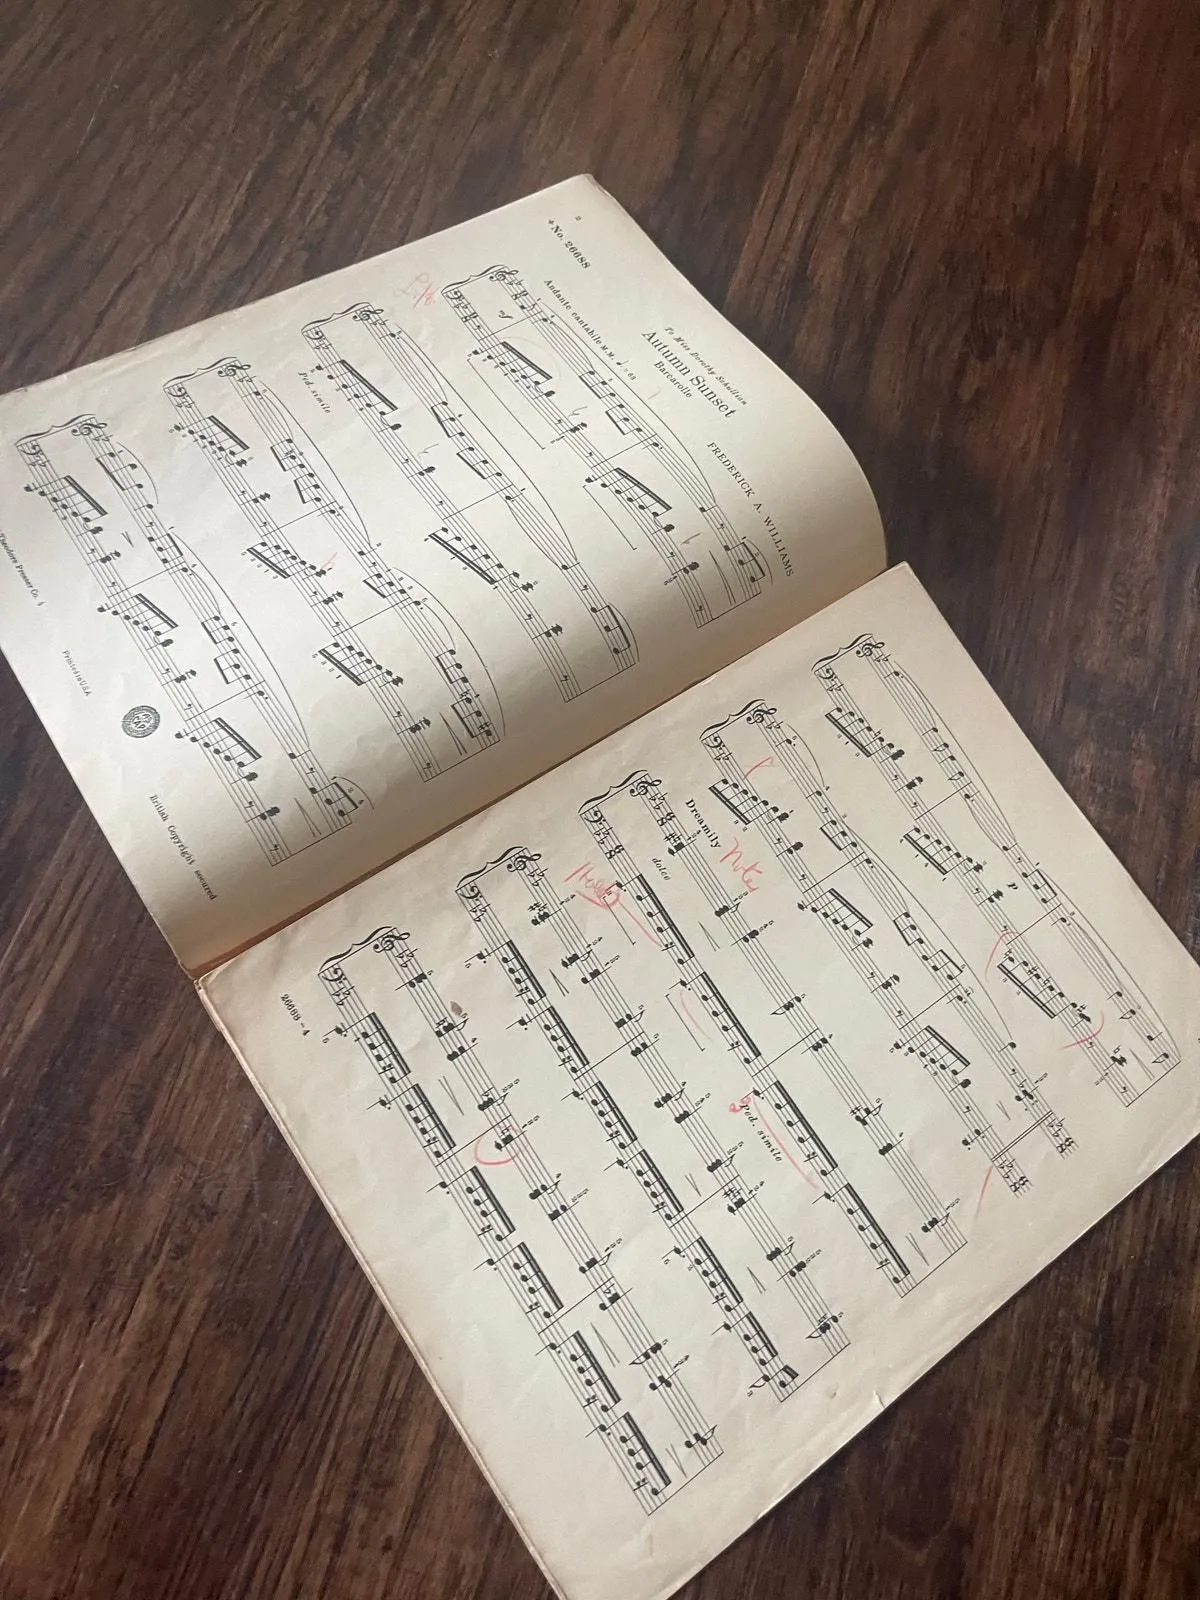 2
No. 26688
To Miss Dorothy Schullian
Autumn Sunset
Barcarolle
FREDERICK A. WILLIAMS
Andante cantabile M.M. ♩. = 68
mf
Ped. simile
Theodore Presser Co.
Printed in U.S.A.
British Copyright secured
p
Dreamily
Notes
dolce
Ped. simile
26688-4